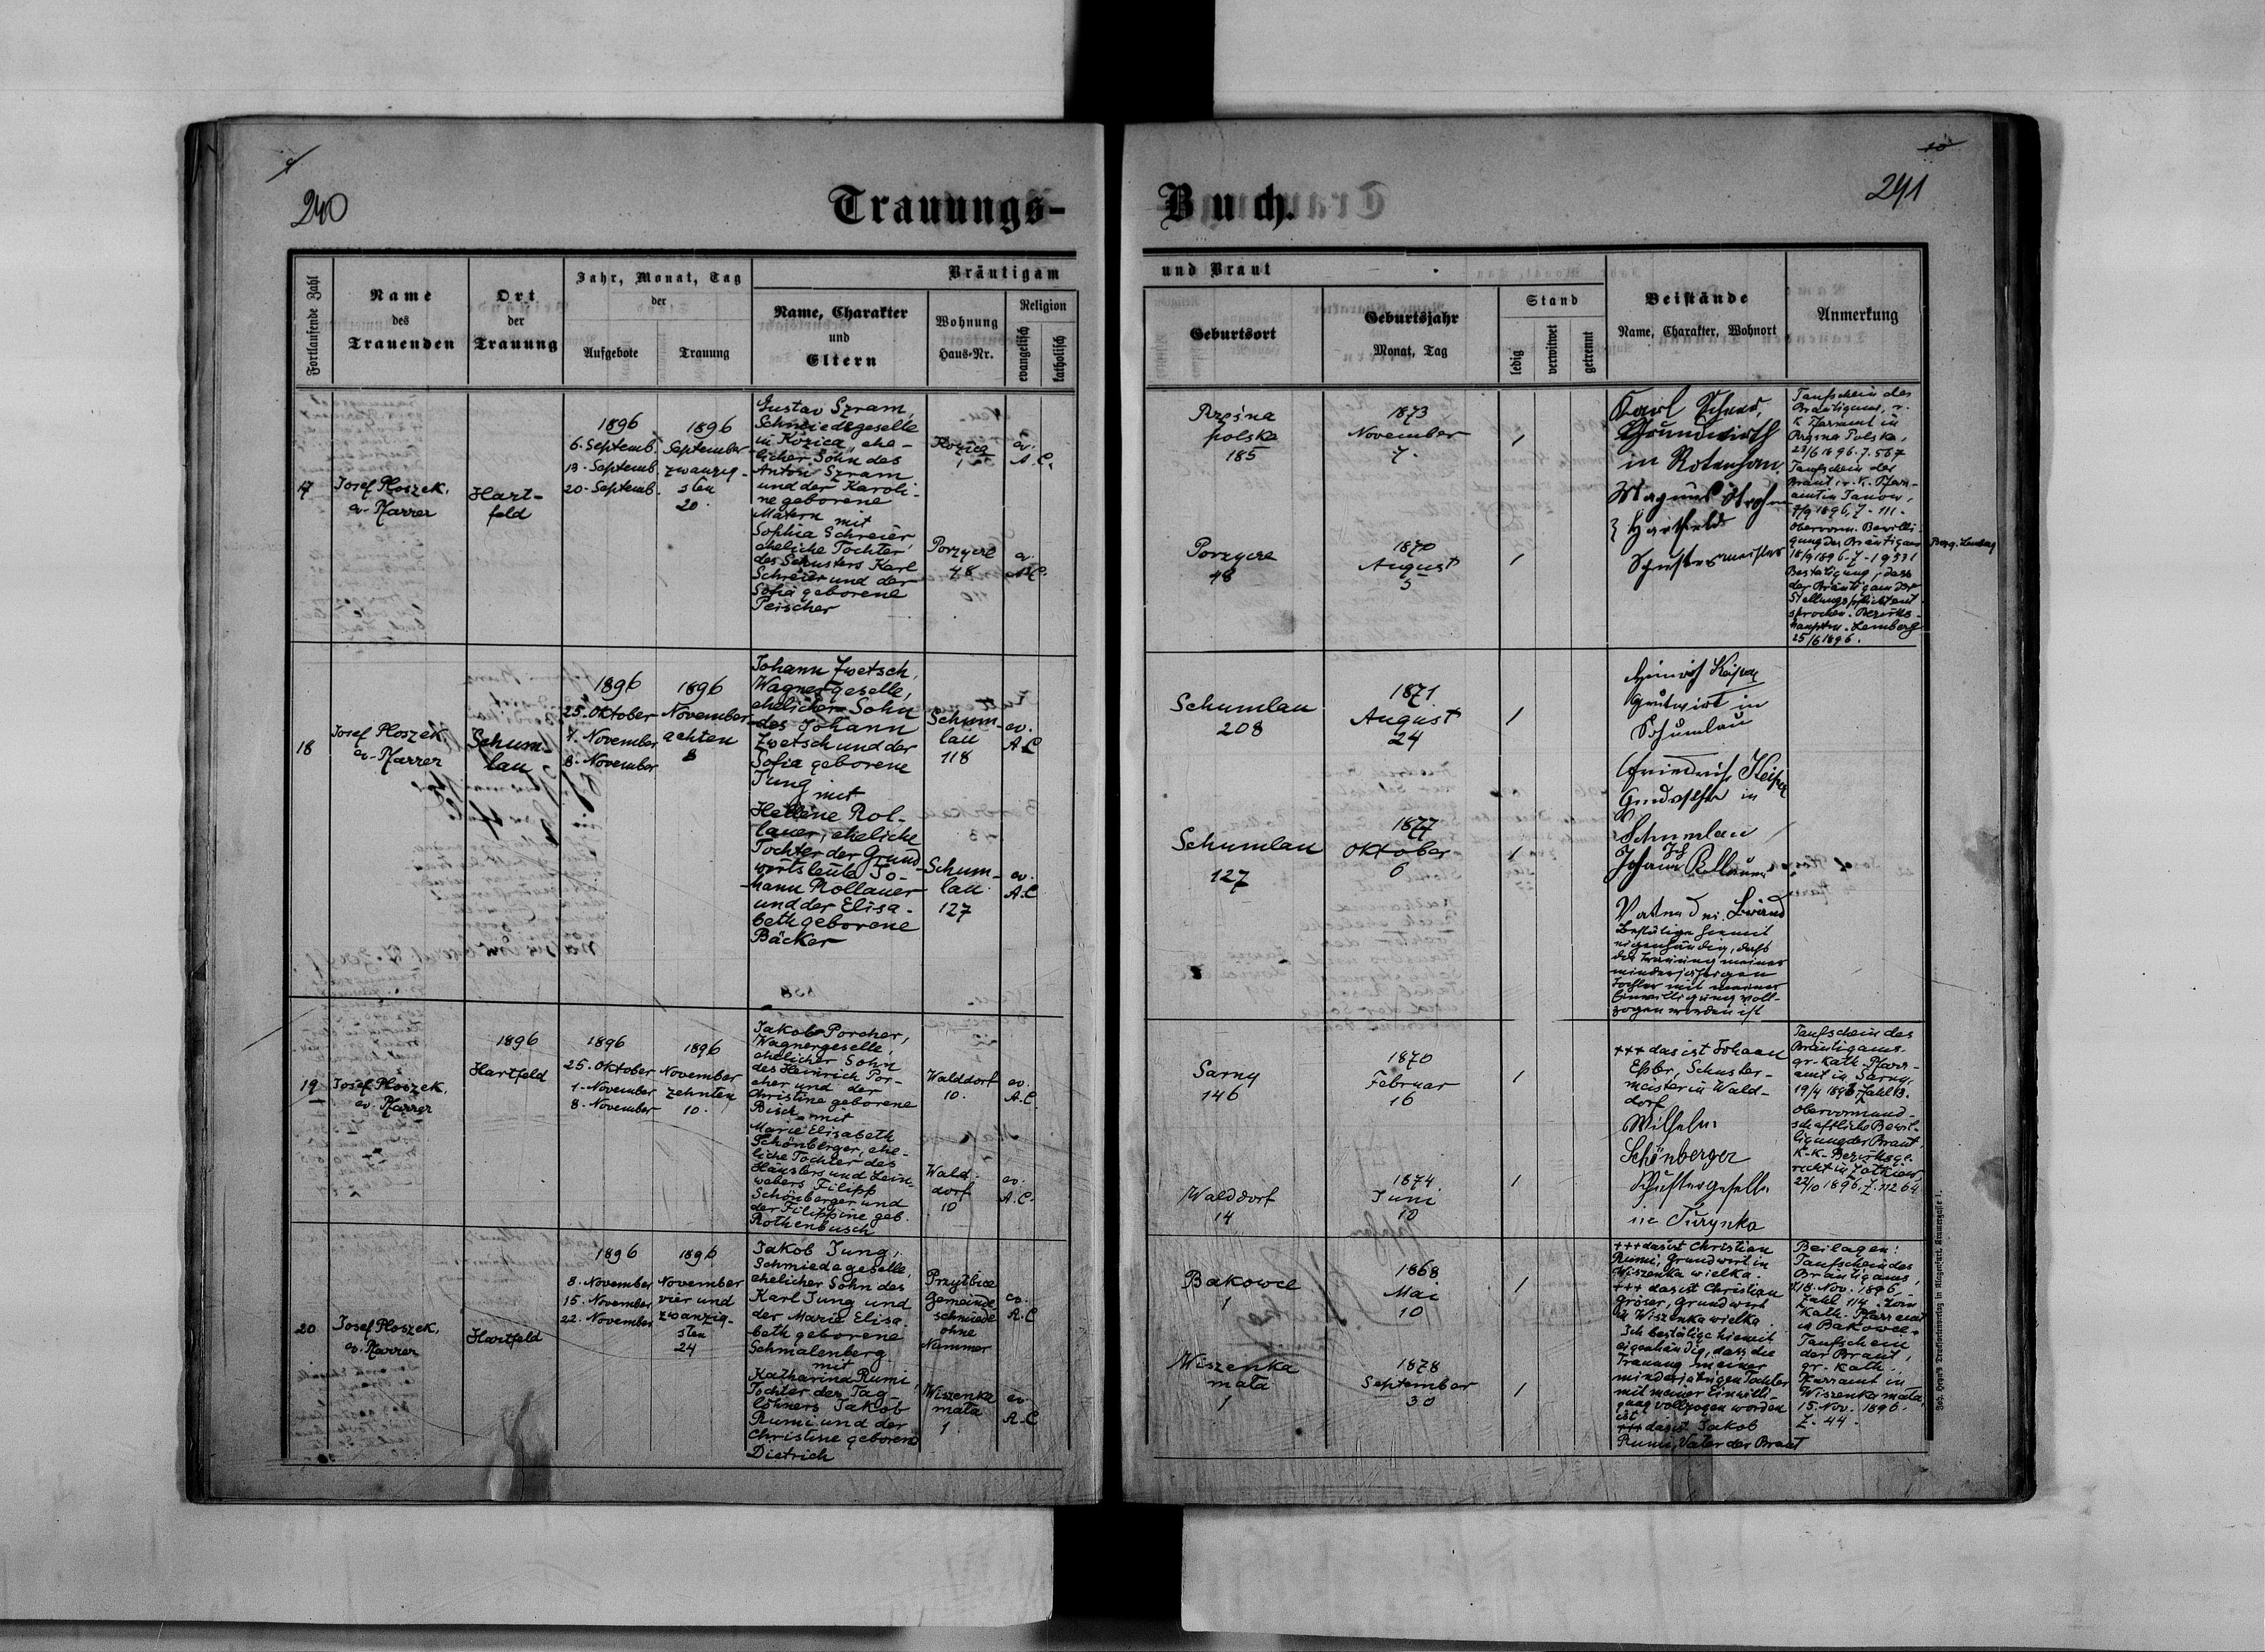 9
240
Trauungs-
Fortlaufende Zahl
Name
des
Trauenden
Ort
der
Trauung
Jahr, Monat, Tag
der
Aufgebote
Trauung
Bräutigam
Name, Charakter
und
Eltern
Wohnung
Haus-Nr.
Religion
evangelisch
katholisch
17
Josef Ploszek,
ev. Pfarrer
Hart-
feld
1896
6. Septemb.
13. Septemb.
20. Septemb.
1896
September
zwanzig-
sten
20.
Gustav Szram,
Schmiedegeselle
in Kozica, ehe-
licher Sohn des
Anton Szram
und der Karoli-
ne geborene
Matern mit
Sophia Schreier
eheliche Tochter
des Schusters Karl
Schreier und der
Sofia geborene
Peischer
Kozica
1
ev.
A.C.
Porzycze
48
ev.
A.C.
18
Josef Ploszek,
ev. Pfarrer
Schum-
lau
1896
25. Oktober
1. November
8. November
1896
November
achten
8
Johann Zwetsch,
Wagnergeselle,
ehelicher Sohn
des Johann
Zwetsch und der
Sofia geborene
Jung mit
Hellene Rol-
lauer, eheliche
Tochter der Grund-
wirtsleute Jo-
hann Rollauer
und der Elisa-
beth geborene
Bäcker
Schum-
lau
118
ev.
A.C
Schum-
lau
127
ev.
A.C
19
Josef Ploszek,
ev. Pfarrer
1896
Hartfeld
1896
25. Oktober
1. November
8. November
1896
November
zehnten
10.
Jakob Porcher,
Wagnergeselle,
ehelicher Sohn
des Heinrich Por-
cher und der
Christine geborene
Bisch mit
Marie Elisabeth
Schönberger, ehe-
liche Tochter des
Häuslers und Lein-
webers Filipp
Schönberger und
der Filippine geb.
Rothenbusch
Walddorf
10.
ev.
A.C.
Wald-
dorf
10
ev.
A.C.
20
Josef Ploszek,
ev. Pfarrer
Hartfeld
1896
8. November
15. November
22. November
1896
November
vier und
zwanzig-
sten
24
Jakob Jung,
Schmiedegeselle,
ehelicher Sohn des
Karl Jung und
der Marie Elisa-
beth geborene
Schmalenberg
mit
Katharina Rumi,
Tochter des Tag-
löhners Jakob
Rumi und der
Christine geborene
Dietrich
Przyłbice
Gemeinde-
schmiede
ohne
Nummer
ev.
A.C
Wiszenka
mała
1
ev.
A.C
10
241
Buch.
und Braut
Geburtsort
Geburtsjahr
Monat, Tag
Stand
ledig
verwitwet
getrennt
Beistände
Name, Charakter, Wohnort
Anmerkung
Rzęsna
polska
185
1873
November
7.
1
Porzycze
48
1870
August
5
1
Karl
Grundwirth
in Rotenhan
Magnus Strohm
Hartfeld
Schustermeister
Taufschein des
Bräutigams, r.
k. Pfarramt in
Rzęsna Polska,
23/6 1896. Z. 567
Taufschein der
Braut, r. k. Pfarr-
amt in Janow,
7/9 1896, Z. 111.
Obervorm. Bewilli-
gung des Bräutigams
18/9 1896. Z. 19331
Bestätigung, dass
der Bräutigam der
Stellungspflicht ent-
sprochen. Bezirks-
hauptm. Lemberg
25/6 1896.
Bezg. Lemberg
Schumlau
208
1871
August
24
1
Schumlau
127
1877
Oktober
6
1
Heinrich Keiper
Grundwirt in
Schumlau
Friedrich Keiper
in
Schumlau
Johann Rollauer
Vater der Braut
Bestätige hiemit
eigenhändig, daß
die Trauung meiner
minderjährigen
Tochter mit meiner
Einwilligung voll-
zogen worden ist
Sarny
146
1870
Februar
16
1
Walddorf
14
1874
Juni
10
1
+++ das ist Johann
Eßler, Schuster-
meister in Wald-
dorf
Wilhelm
Schönberger
Schustergeselle
in Turynka
Taufschein des
Bräutigams.
gr. kath. Pfarr-
amt in Sarny,
19/4 1896, Zahl 13.
Obervormund-
schaftliche Bewil-
ligung der Braut,
K.K. Bezirksge-
richt in Żołkiew,
22/10 1896, Z. 11264
Bakowce
1
1868
Mai
10
1
Wiszenka
mała
1
1878
September
30
1
+++ das ist Christian
Rumi, Grundwirt in
Wiszenka wielka.
+++ das ist Christian
Gröser, Grundwirt
in Wiszenka wielka
Ich bestätige hiemit
eigenhändig, dass die
Trauung meiner
minderjährigen Tochter
mit meiner Einwilli-
gung vollzogen worden
ist
+++ das ist Jakob
Rumi, Vater der Braut
Beilagen:
Taufschein des
Bräutigams,
18. Nov. 1896,
Zahl 114. röm.
kath. Pfarramt
in Bakowce.
Taufschein
der Braut,
gr. kath.
Pfarramt in
Wiszenka mała,
15. Nov. 1896.
Z. 44.